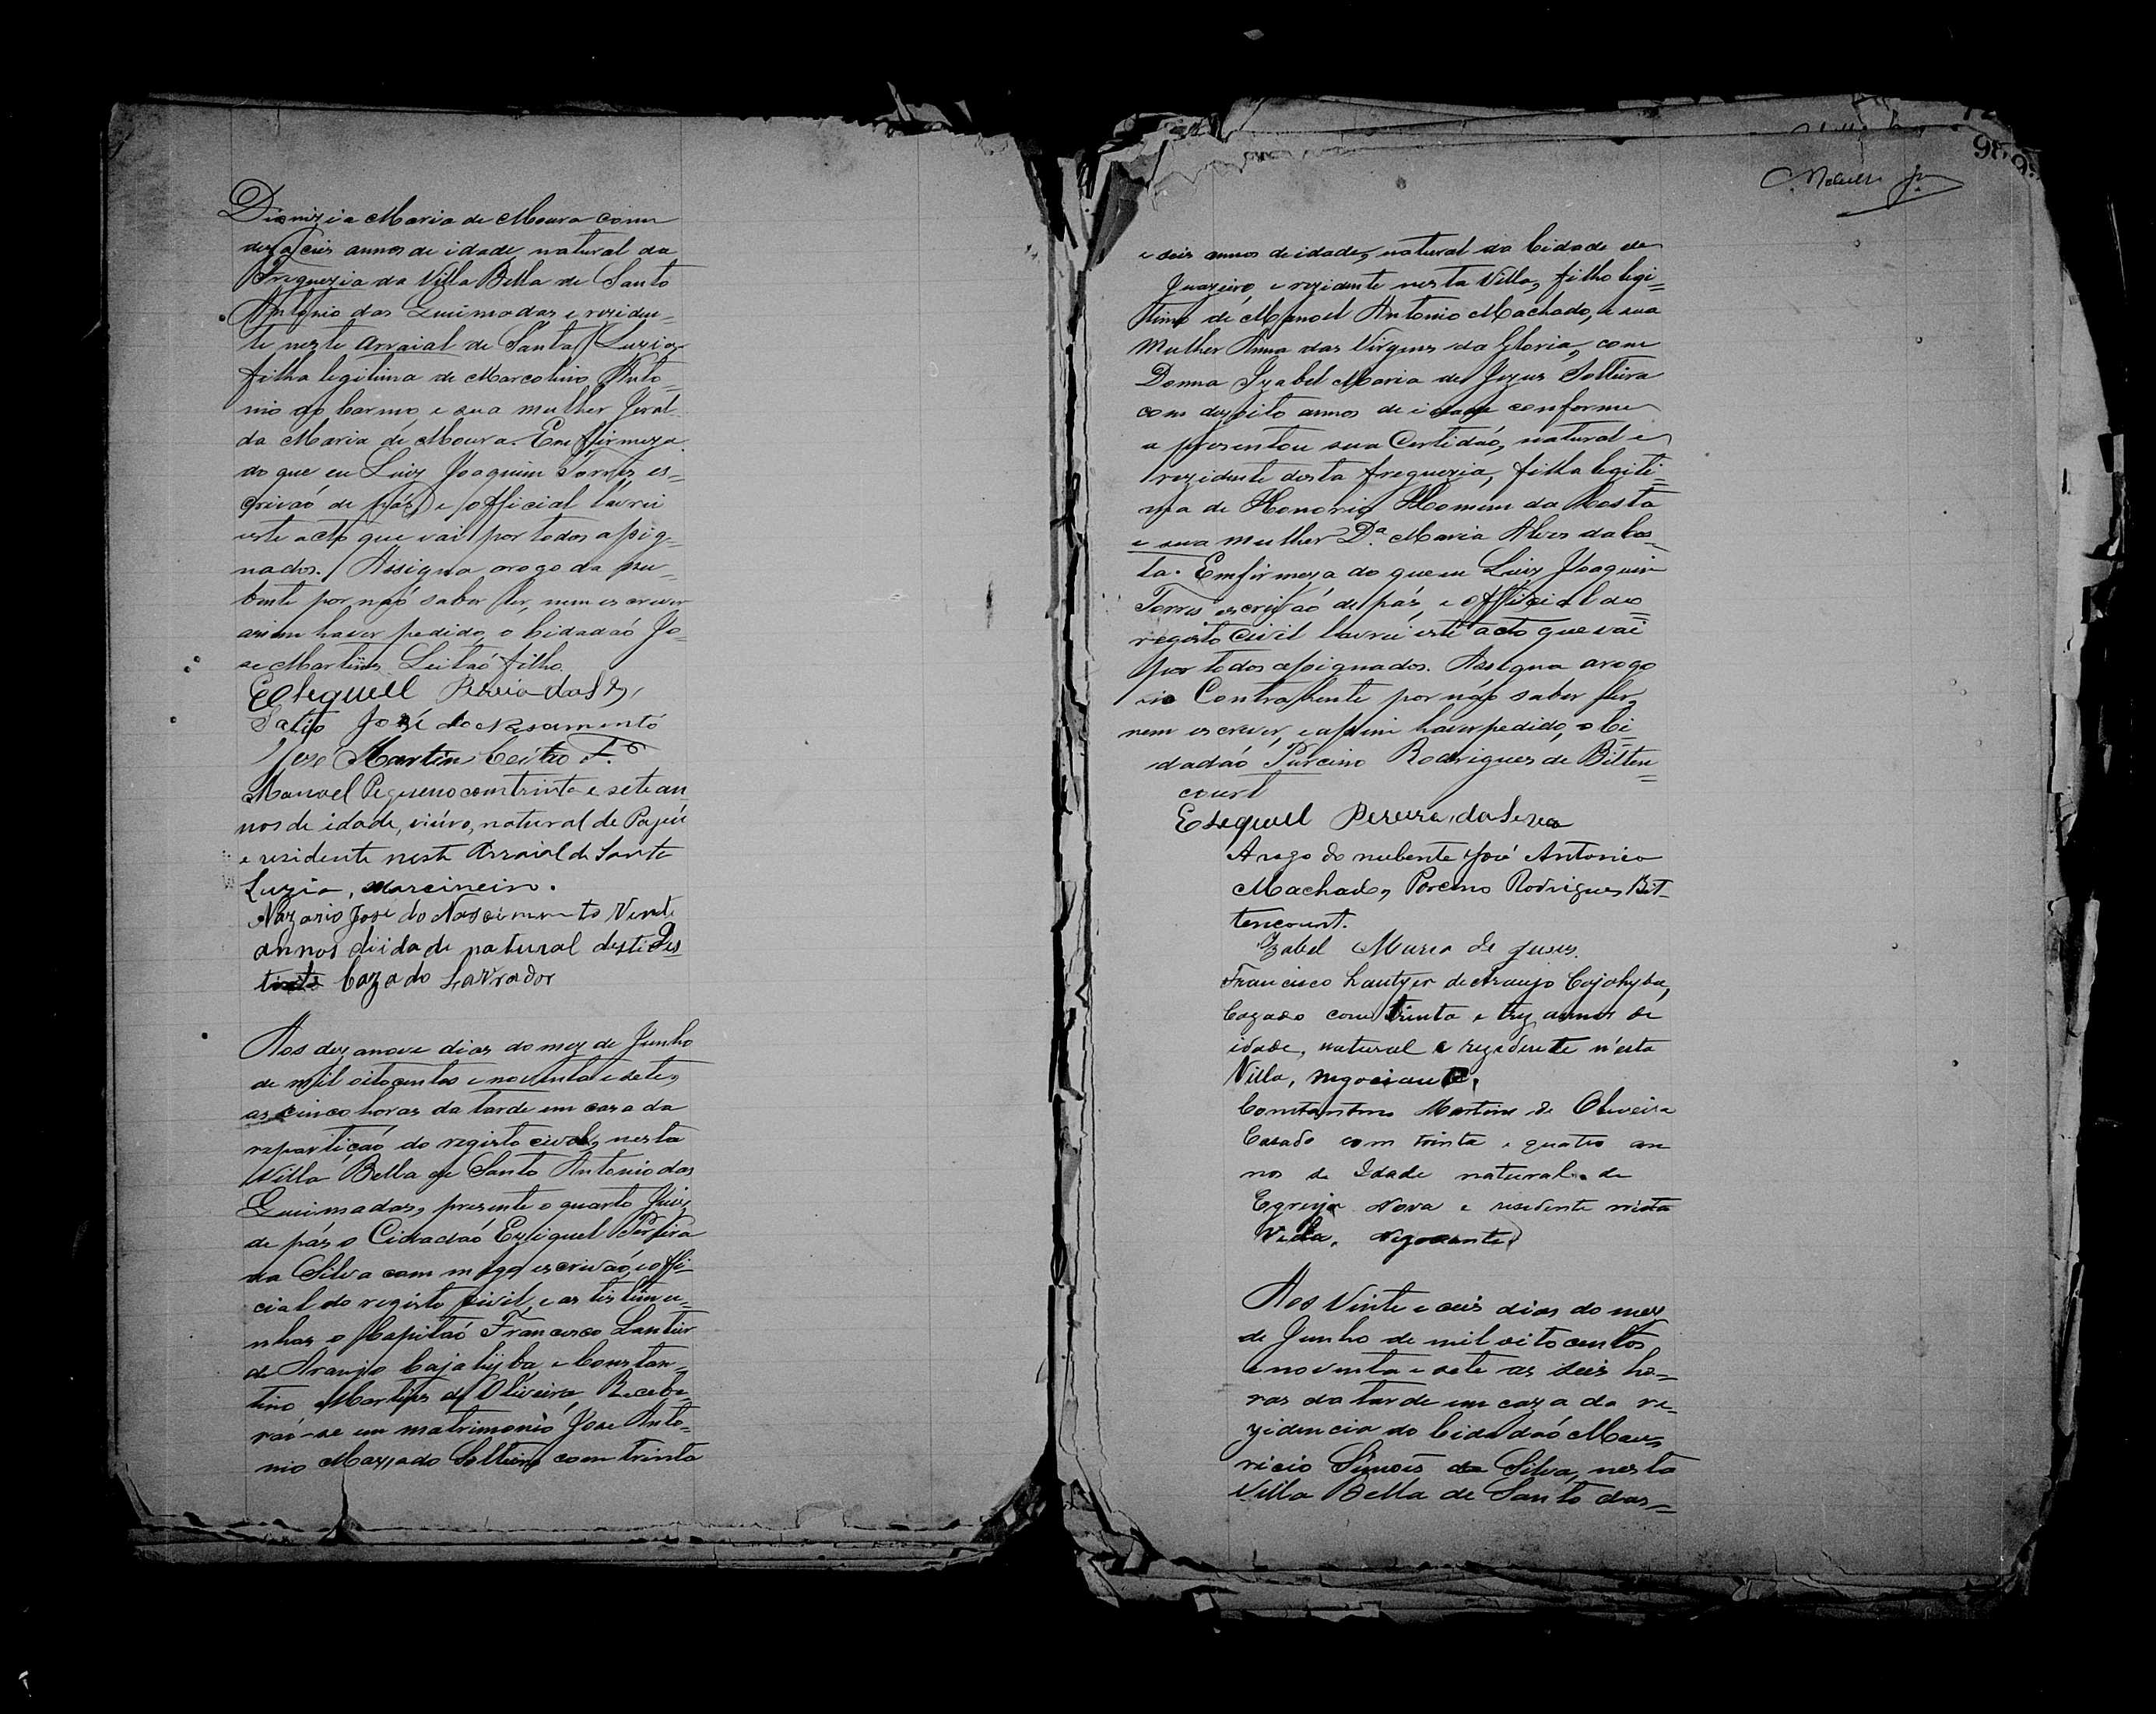 Dionizia Maria de Moura com
dezaceis annos de idade, natural da
Freguezia da Villa Bella de Santo
Antonio das Queimadas e reziden=
te neste Arraial de Santa Luzia
filha legitima de Marcolino Anto=
nio do Carmo e sua mulher Geral
da Maria de Moura. Em firmeza
do que eu Luiz Joaquim Torres, es=
crivaõ de páz, e official lavrei
este acto que vai por todos assig=
nados. Assigna arogo da nu=
bente por naõ saber ler, nem escrever
asim haver pedido, o Cidadaõ Jo=
se Martins Leitaõ filho.
José do Nascimento
José Martins Leitão Fº
Manoel Pequeno com trinta e sete an
nos de idade, viúvo, natural de Pajeú
e residente neste Arraial de Santa
Luzia, Marcineiro.
Nazario José do Nascimento Vinte
annos diidade natural deste Des
tinto Cazado Lavrador
Aos dezanove dias do mez de Junho
de mil oitocentos e noventa e sete,
as cinco horas da tarde em casa da
repartiçaõ do registo civel, nesta
Villa Bella de Santo Antonio das
Queimadas, presente o quarto Juiz
de pás o Cidadaõ Eziquel Pereira
da Silva com migo escrivaõ, e offi=
cial do registo civil, e as testimu=
nhas o Capitaõ Francisco Lantier
de Araujo Cajahijba, e Constan=
tino Martins de Oliveira, Recebe
raõ-se em matrimonio Jose Anto=
nio Maxado Solteiro com trinta
98
e seis annos de idade, natural da Cidade de
Juazeiro, e rezidente nesta Villa, filho legi=
timo de Manoel Antonio Machado, e sua
Mulher Anna das Virgens da Gloria, com
Donna Izabel Maria de Jezus Solteira
com dezoito annos de idade conforme
a presentou sua Certidaõ, natural e
rezidente desta freguezia, filha legiti=
ma de Honorio Homem da Costa
e sua mulher D.ª Maria Alves da Cos=
ta. Emfirmeza do que eu Luiz Joaquim
Torres escrivaõ de pás, e Official do
registo Civil lavrei este acto que vai
por todos assignados. Assigna arogo
do Contrahente por nâo saber ler,
nem escrever, e assim haver pedido, o Ci=
dadaõ Purcino Rodrigues de Bitten=
court
Esequiel Pereira da Silva
Arogo do nubente José Antonio
Machado, Porcino Rodrigues Bit-
tencourt.
Izabel Maria de Jesus.
Francisco Lantyer de Araujo Cajahyba,
Cazado com trinta e trez annos de
idade, natural e rezidente n'esta
Villa, negociante.
Constantino Martins de Oliveira
Casado com trinta e quatro an
nos de Idade natural de
Egreja Nova e residente nesta
Villa, Negociante
Aos Vinte e ceis dias do mez
de Junho de mil oito centos
e noventa e sete as seis ho=
ras da tarde em caza da re=
zidencia do Cidadaõ Mau=
ricio Simoẽs da Silva, nesta
Villa Bella de Santo das=